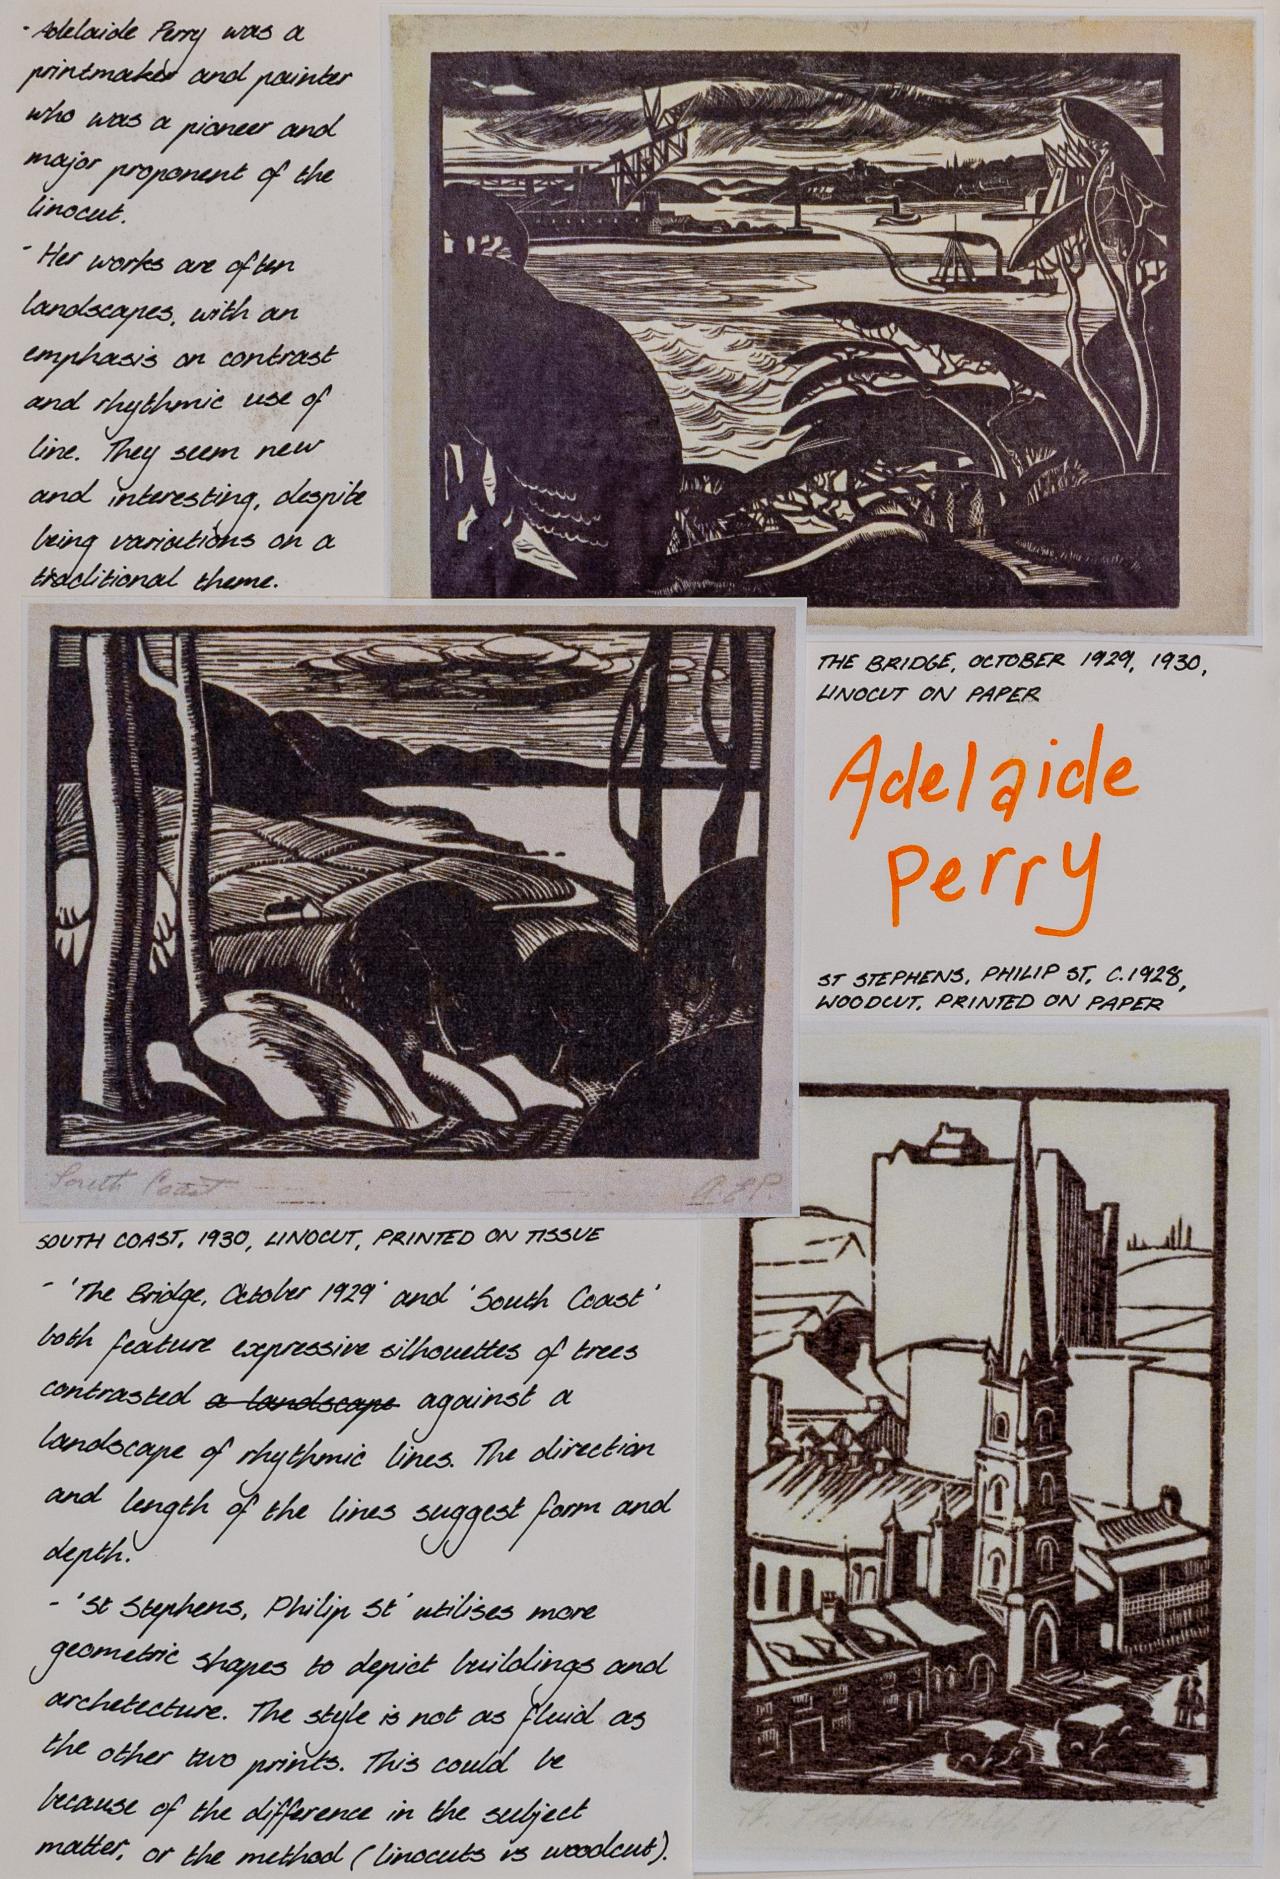 - Adelaide Perry was a
printmaker and painter
who was a pioneer and
major proponent of the
linocut.
- Her works are often
landscapes, with an
emphasis on contrast
and rhythmic use of
line. They seem new
and interesting, despite
being variations on a
traditional theme.
THE BRIDGE, OCTOBER 1929, 1930,
LINOCUT ON PAPER
Adelaide
Perry
ST STEPHENS, PHILIP ST, C.1928,
WOODCUT, PRINTED ON PAPER
South Coast
A.E.P.
SOUTH COAST, 1930, LINOCUT, PRINTED ON TISSUE
- 'The Bridge, October 1929' and 'South Coast'
both feature expressive silhouettes of trees
contrasted a landscape against a
landscape of rhythmic lines. The direction
and length of the lines suggest form and
depth.
- 'St Stephens, Philip St' utilises more
geometric shapes to depict buildings and
archetecture. The style is not as fluid as
the other two prints. This could be
because of the difference in the subject
matter, or the method (linocuts vs woodcut).